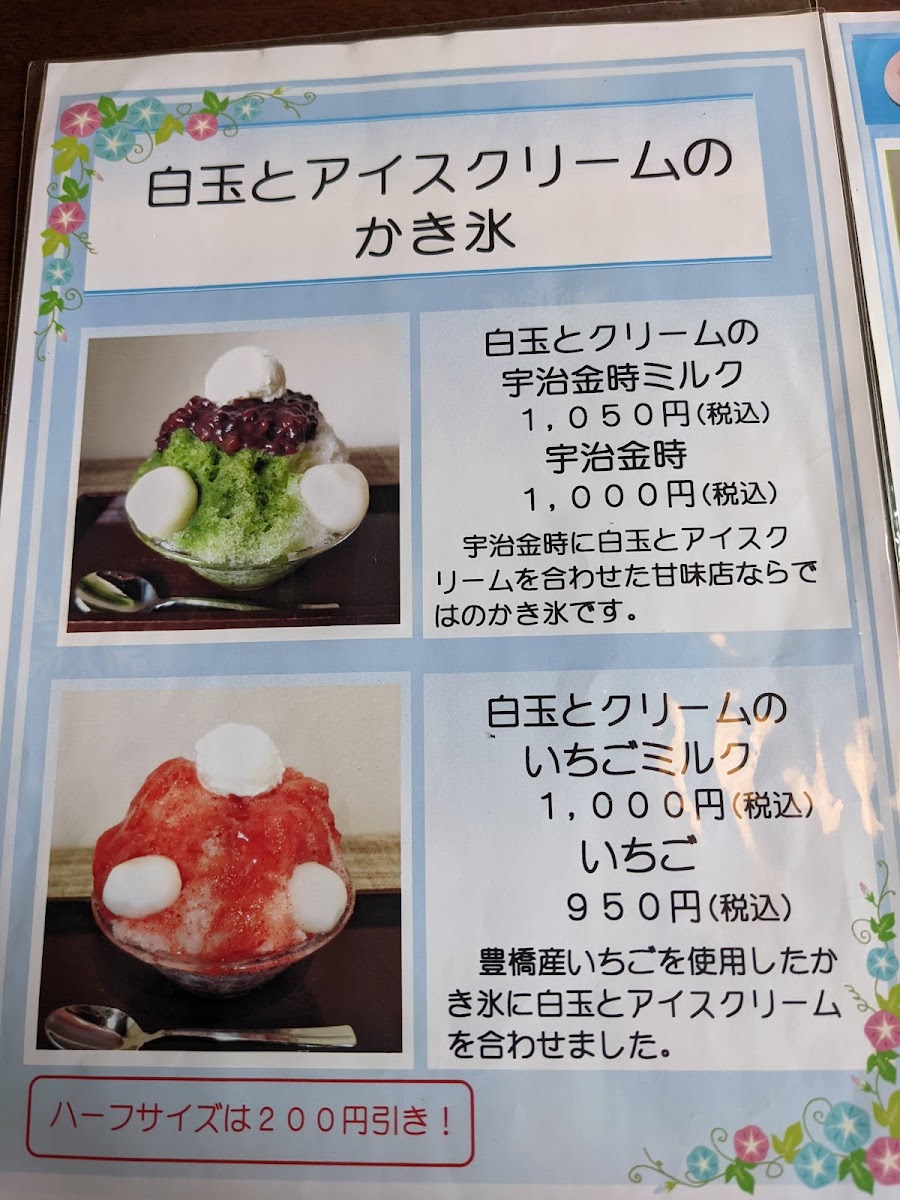 白玉とアイスクリームの
かき氷
白玉とクリームの
宇治金時ミルク
１,０５０円(税込)
宇治金時
１,０００円(税込)
宇治金時に白玉とアイスク
リームを合わせた甘味店ならで
はのかき氷です。
白玉とクリームの
いちごミルク
１,０００円(税込)
いちご
９５０円(税込)
豊橋産いちごを使用したか
き氷に白玉とアイスクリーム
を合わせました。
ハーフサイズは２００円引き！